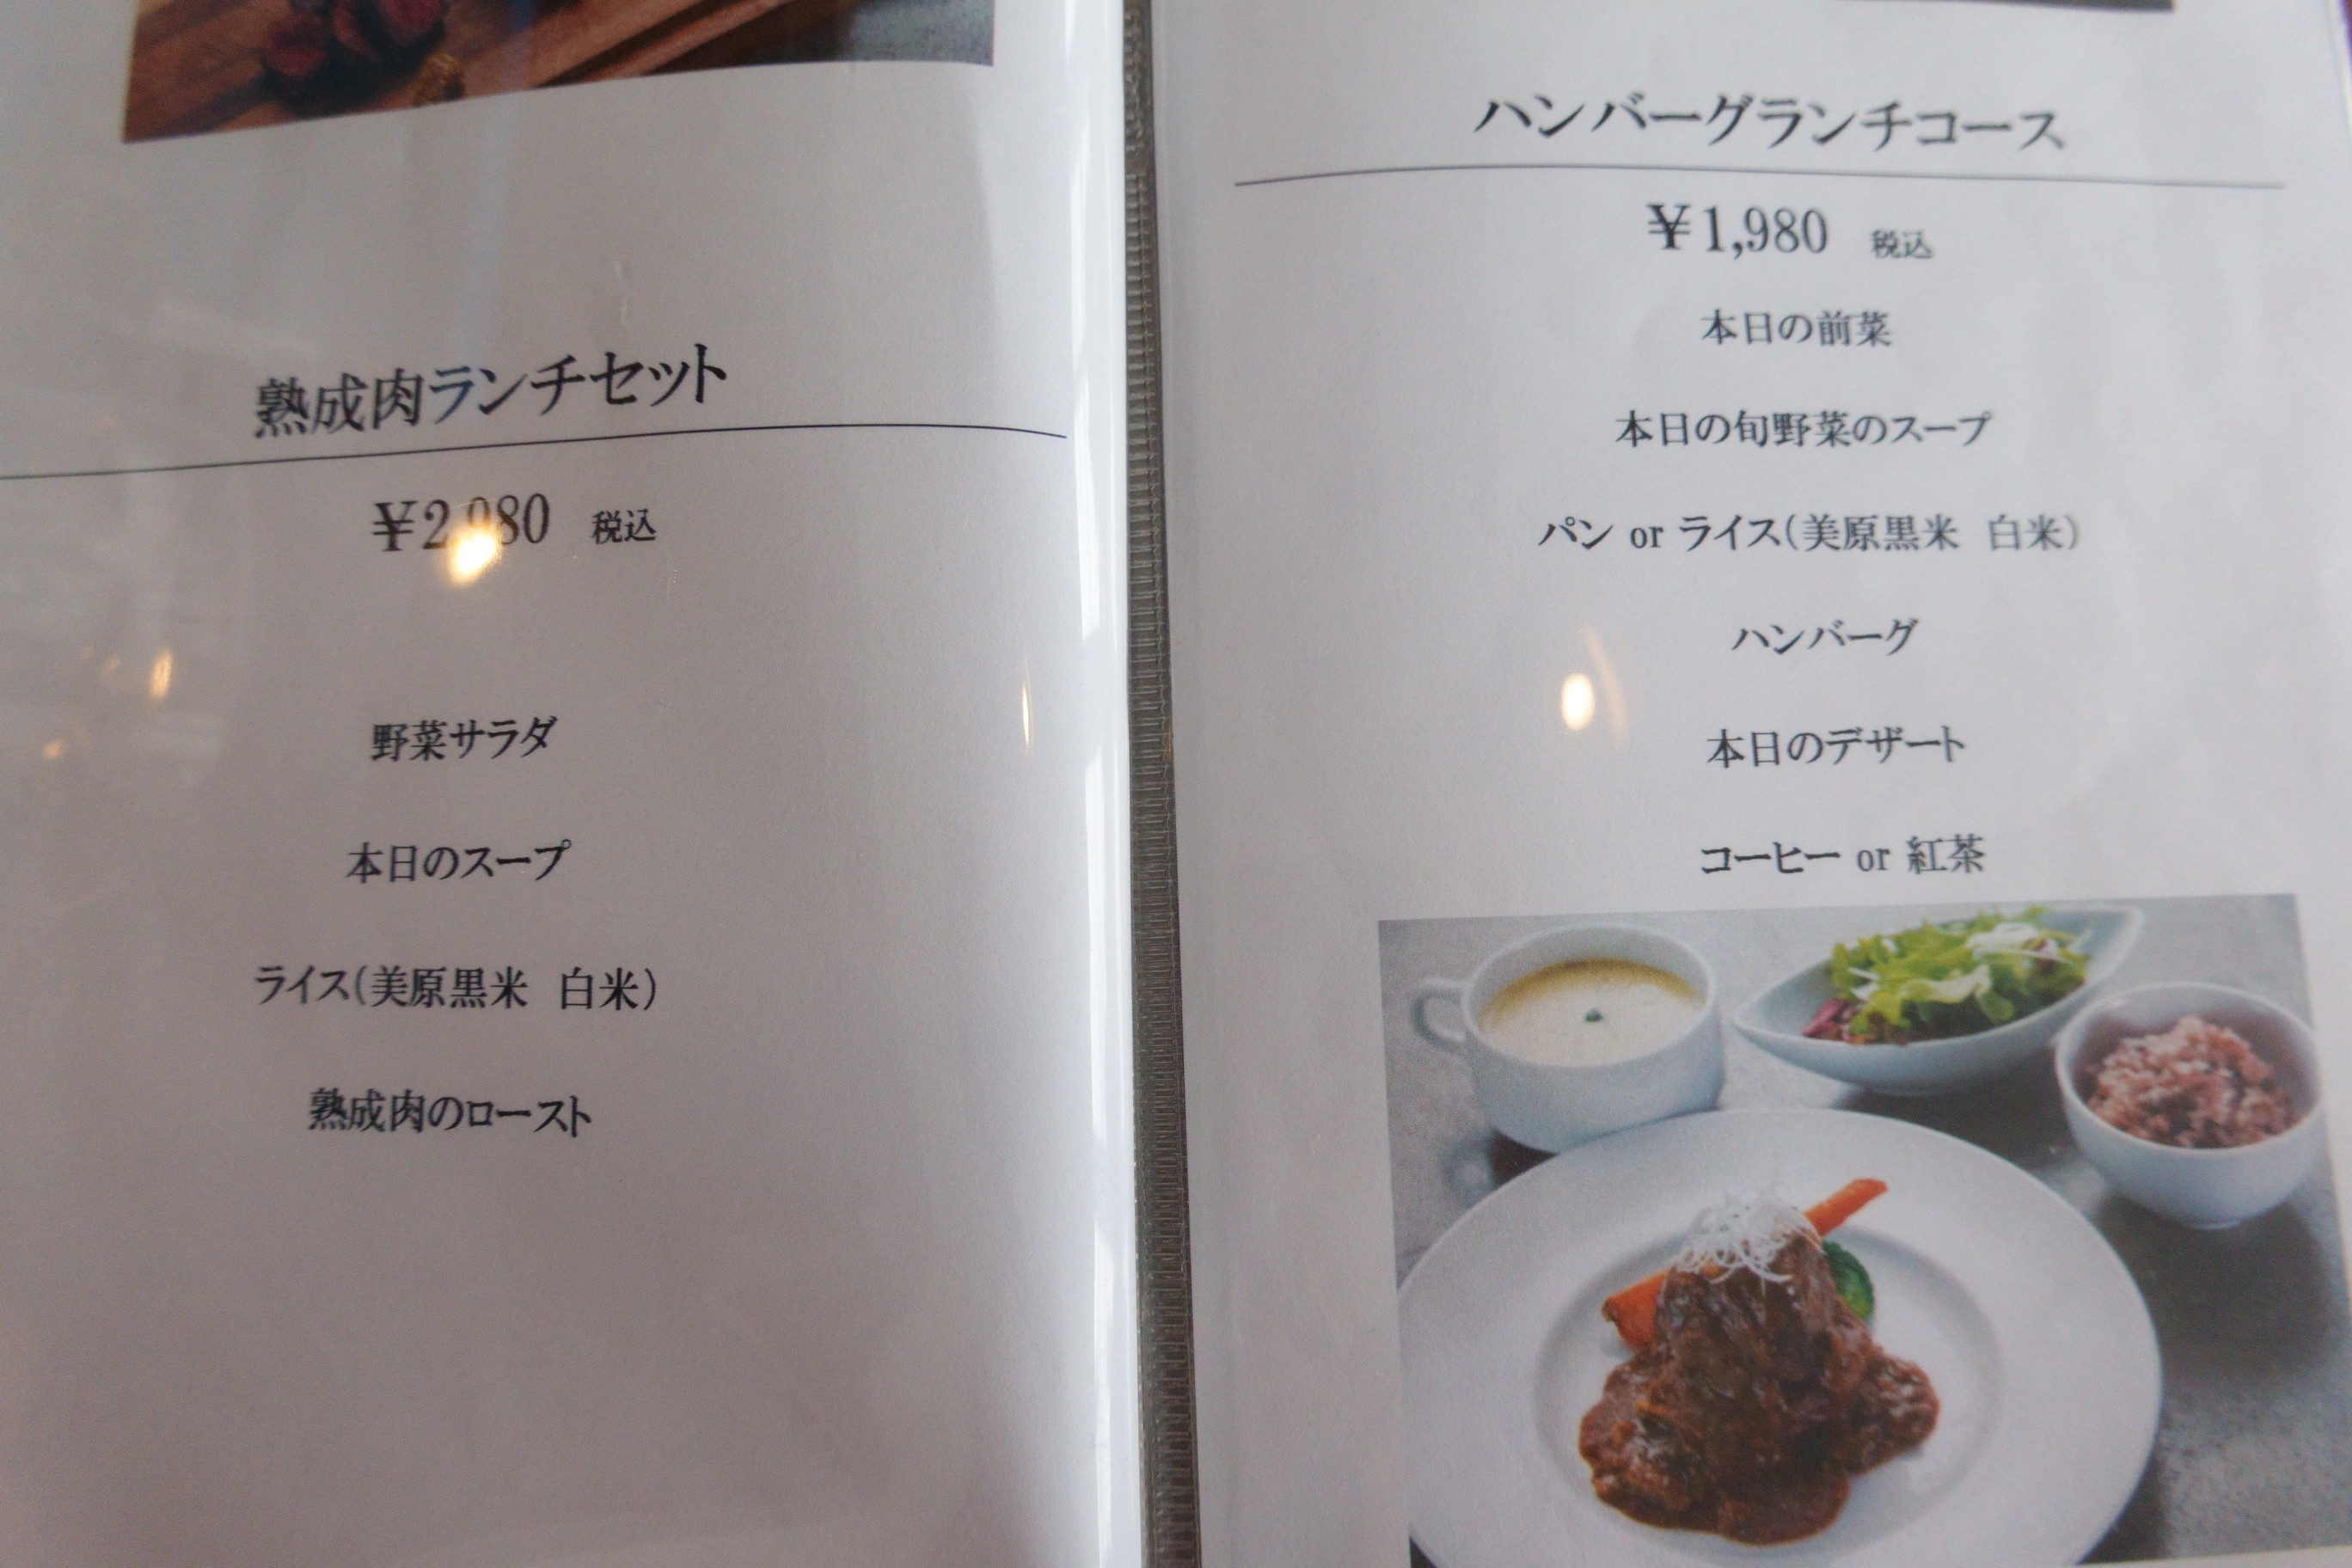 熟成肉ランチセット
¥2,980 税込
野菜サラダ
本日のスープ
ライス(美原黒米 白米)
熟成肉のロースト
ハンバーグランチコース
¥1,980 税込
本日の前菜
本日の旬野菜のスープ
パン or ライス(美原黒米 白米)
ハンバーグ
本日のデザート
コーヒー or 紅茶